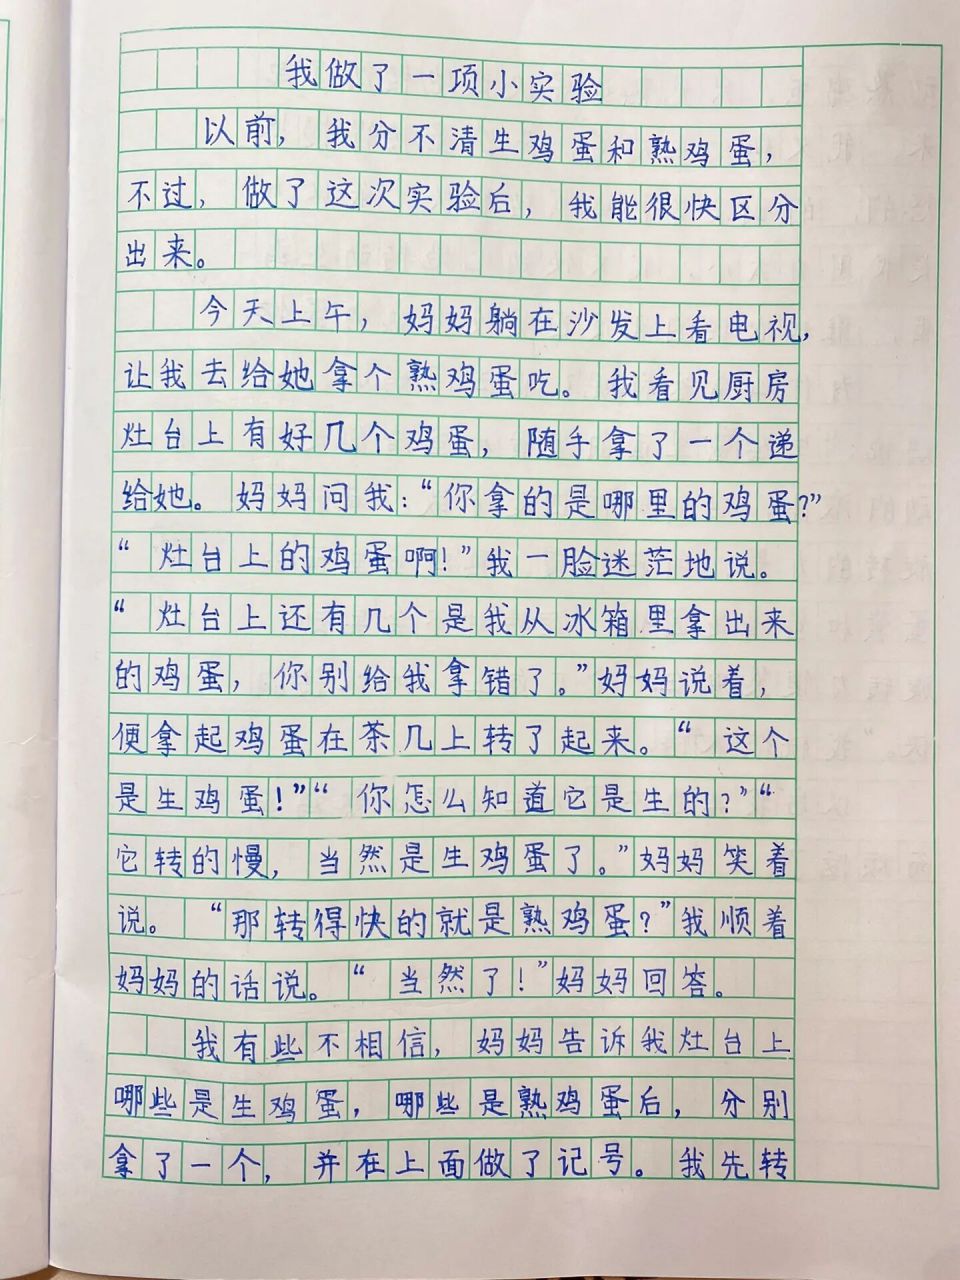 我做了一项小实验
以前，我分不清生鸡蛋和熟鸡蛋，
不过，做了这次实验后，我能很快区分
出来。
今天上午，妈妈躺在沙发上看电视，
让我去给她拿个熟鸡蛋吃。我看见厨房
灶台上有好几个鸡蛋，随手拿了一个递
给她。妈妈问我：“你拿的是哪里的鸡蛋？”
“灶台上的鸡蛋啊！”我一脸迷茫地说。
“灶台上还有几个是我从冰箱里拿出来
的鸡蛋，你别给我拿错了。”妈妈说着，
便拿起鸡蛋在茶几上转了起来。“这个
是生鸡蛋！”“你怎么知道它是生的？”“
它转的慢，当然是生鸡蛋了。”妈妈笑着
说。“那转得快的就是熟鸡蛋？”我顺着
妈妈的话说。“当然了！”妈妈回答。
我有些不相信，妈妈告诉我灶台上
哪些是生鸡蛋，哪些是熟鸡蛋后，分别
拿了一个，并在上面做了记号。我先转